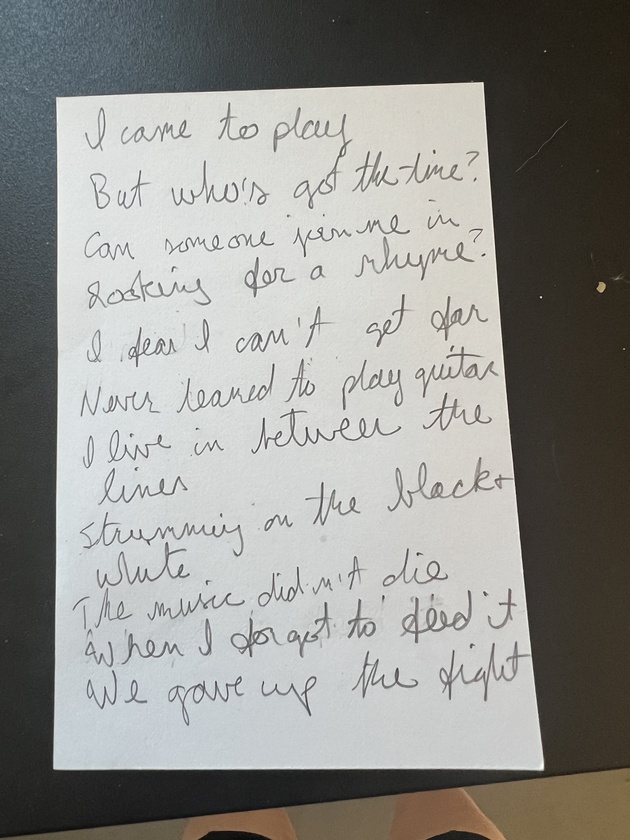 I came to play
But who's got the time?
Can someone join me in
Looking for a rhyme?
I fear I can't get far
Never learned to play guitar
I live in between the
lines
Strumming on the black +
white
The music didn't die
When I forgot to feed it
We gave up the fight